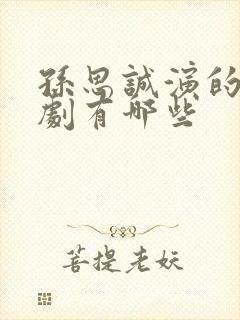 孫思誠演的
劇有哪些
菩提老妖